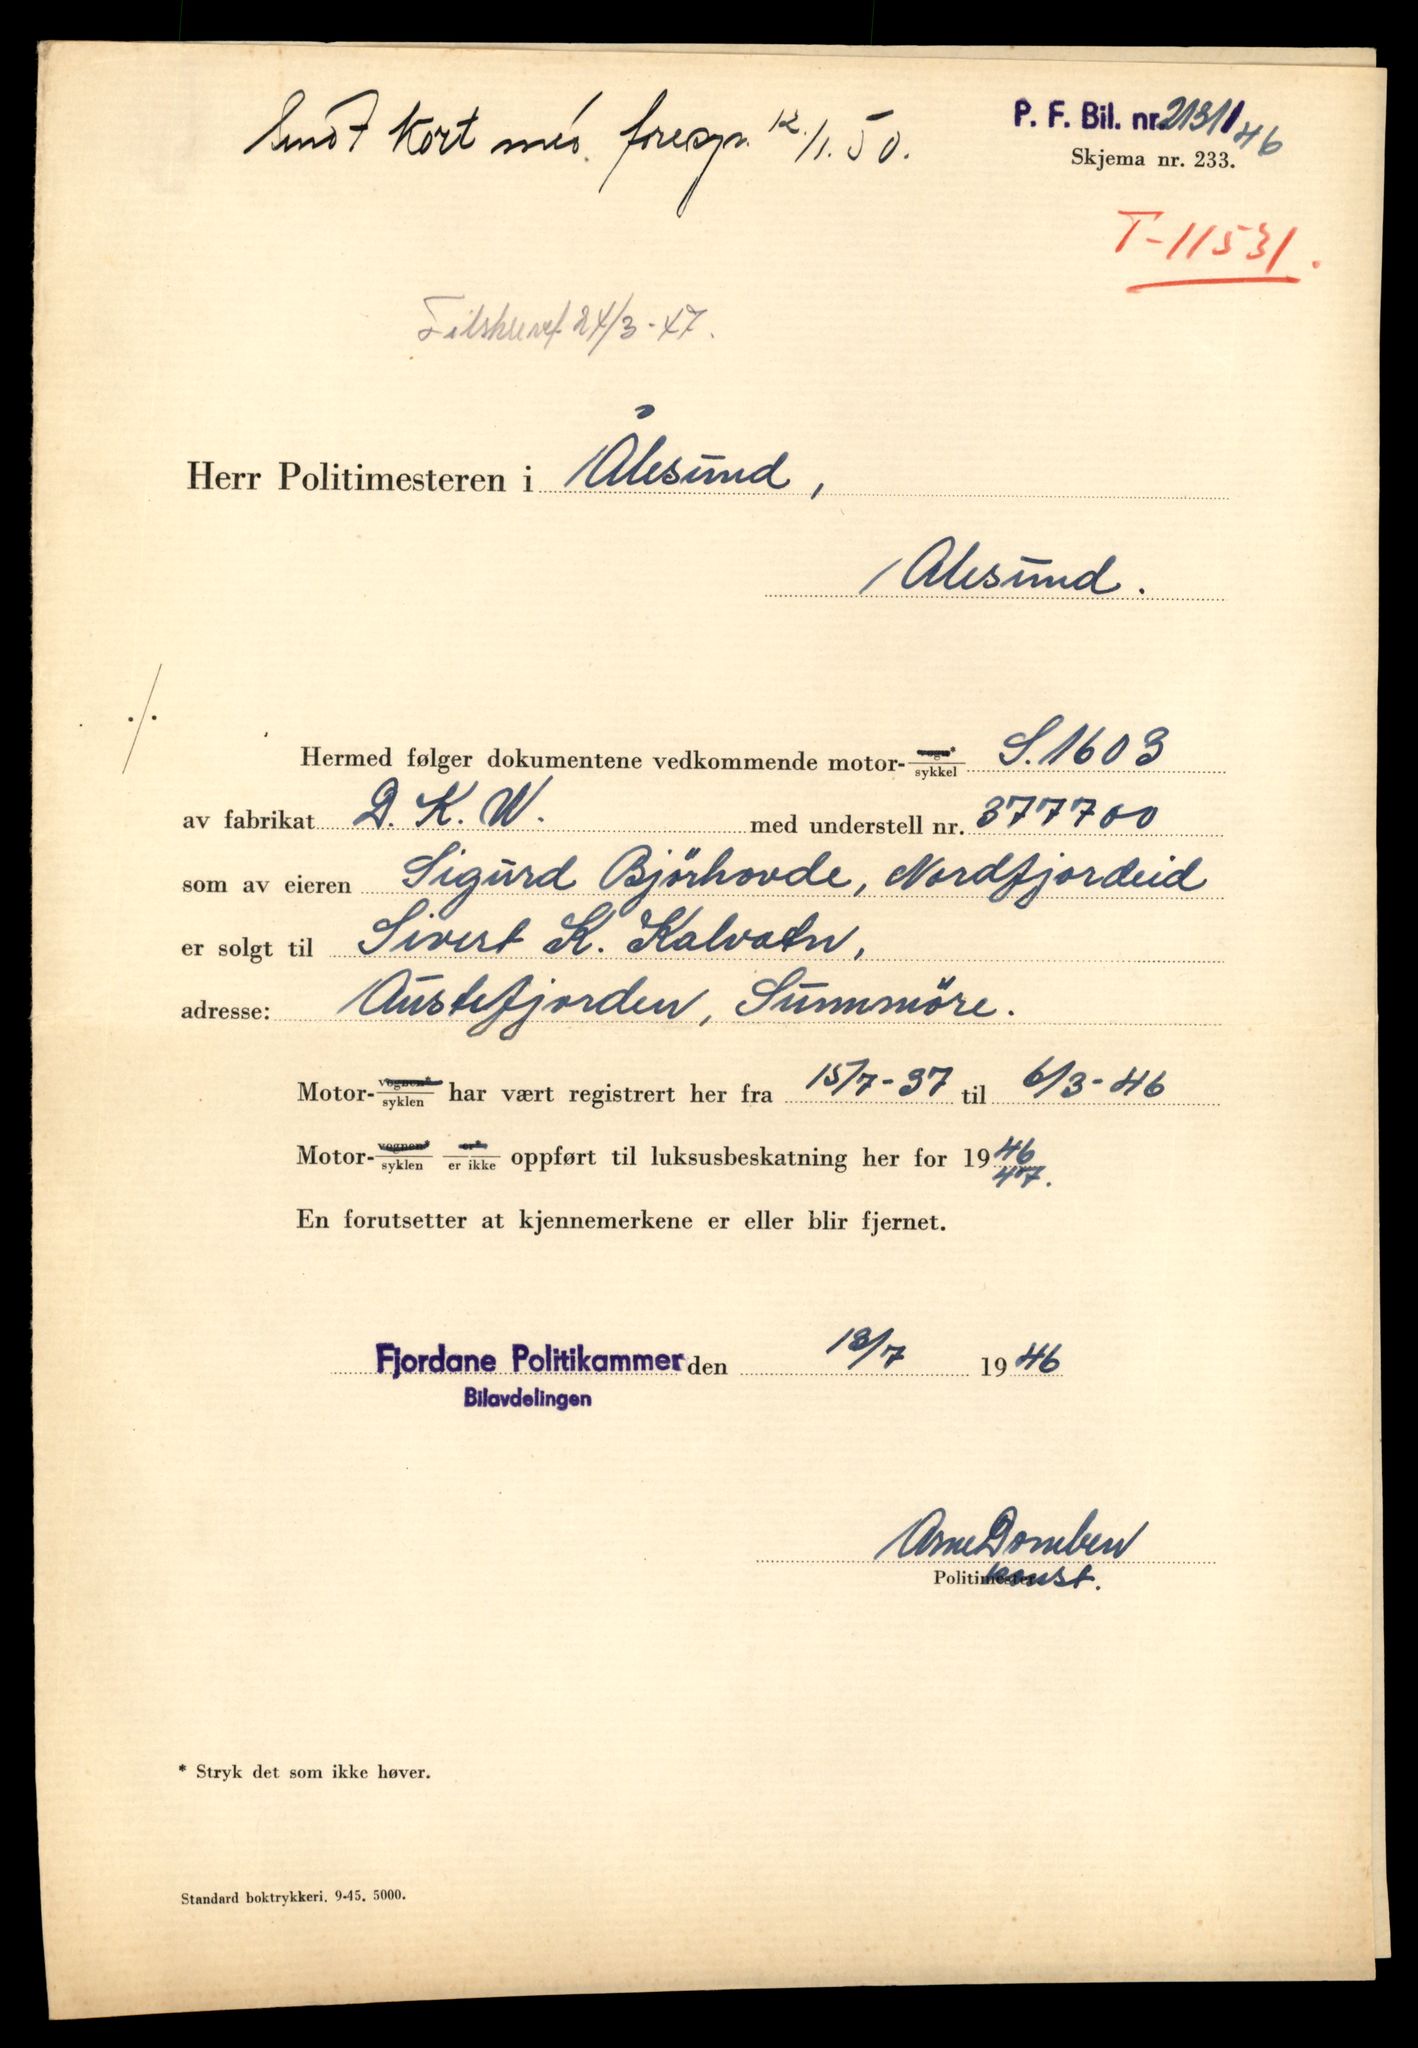 Sendt kort med foresp. 12./1.50.
P. F. Bil. nr. 2131/46
Skjema nr. 233.
T-11531.
Tilskrevet 24/3-47.
Herr Politimesteren i Ålesund,
Ålesund.
./.
Hermed følger dokumentene vedkommende motor-vogn*/sykkel S.1603
av fabrikat D.K.W. med understell nr. 377700
som av eieren Sigurd Bjørhovde, Nordfjordeid
er solgt til Sivert K. Kalvatn,
adresse: Austefjorden, Sunnmöre.
Motor-vognen*/syklen har vært registrert her fra 15/7-37 til 6/3-46
Motor-vognen*/syklen er*/er ikke oppført til luksusbeskatning her for 1946/47.
En forutsetter at kjennemerkene er eller blir fjernet.
Fjordane Politikammer den 13/7 1946
Bilavdelingen
Arne
Politimester
konst.
* Stryk det som ikke høver.
Standard boktrykkeri. 9-45. 5000.